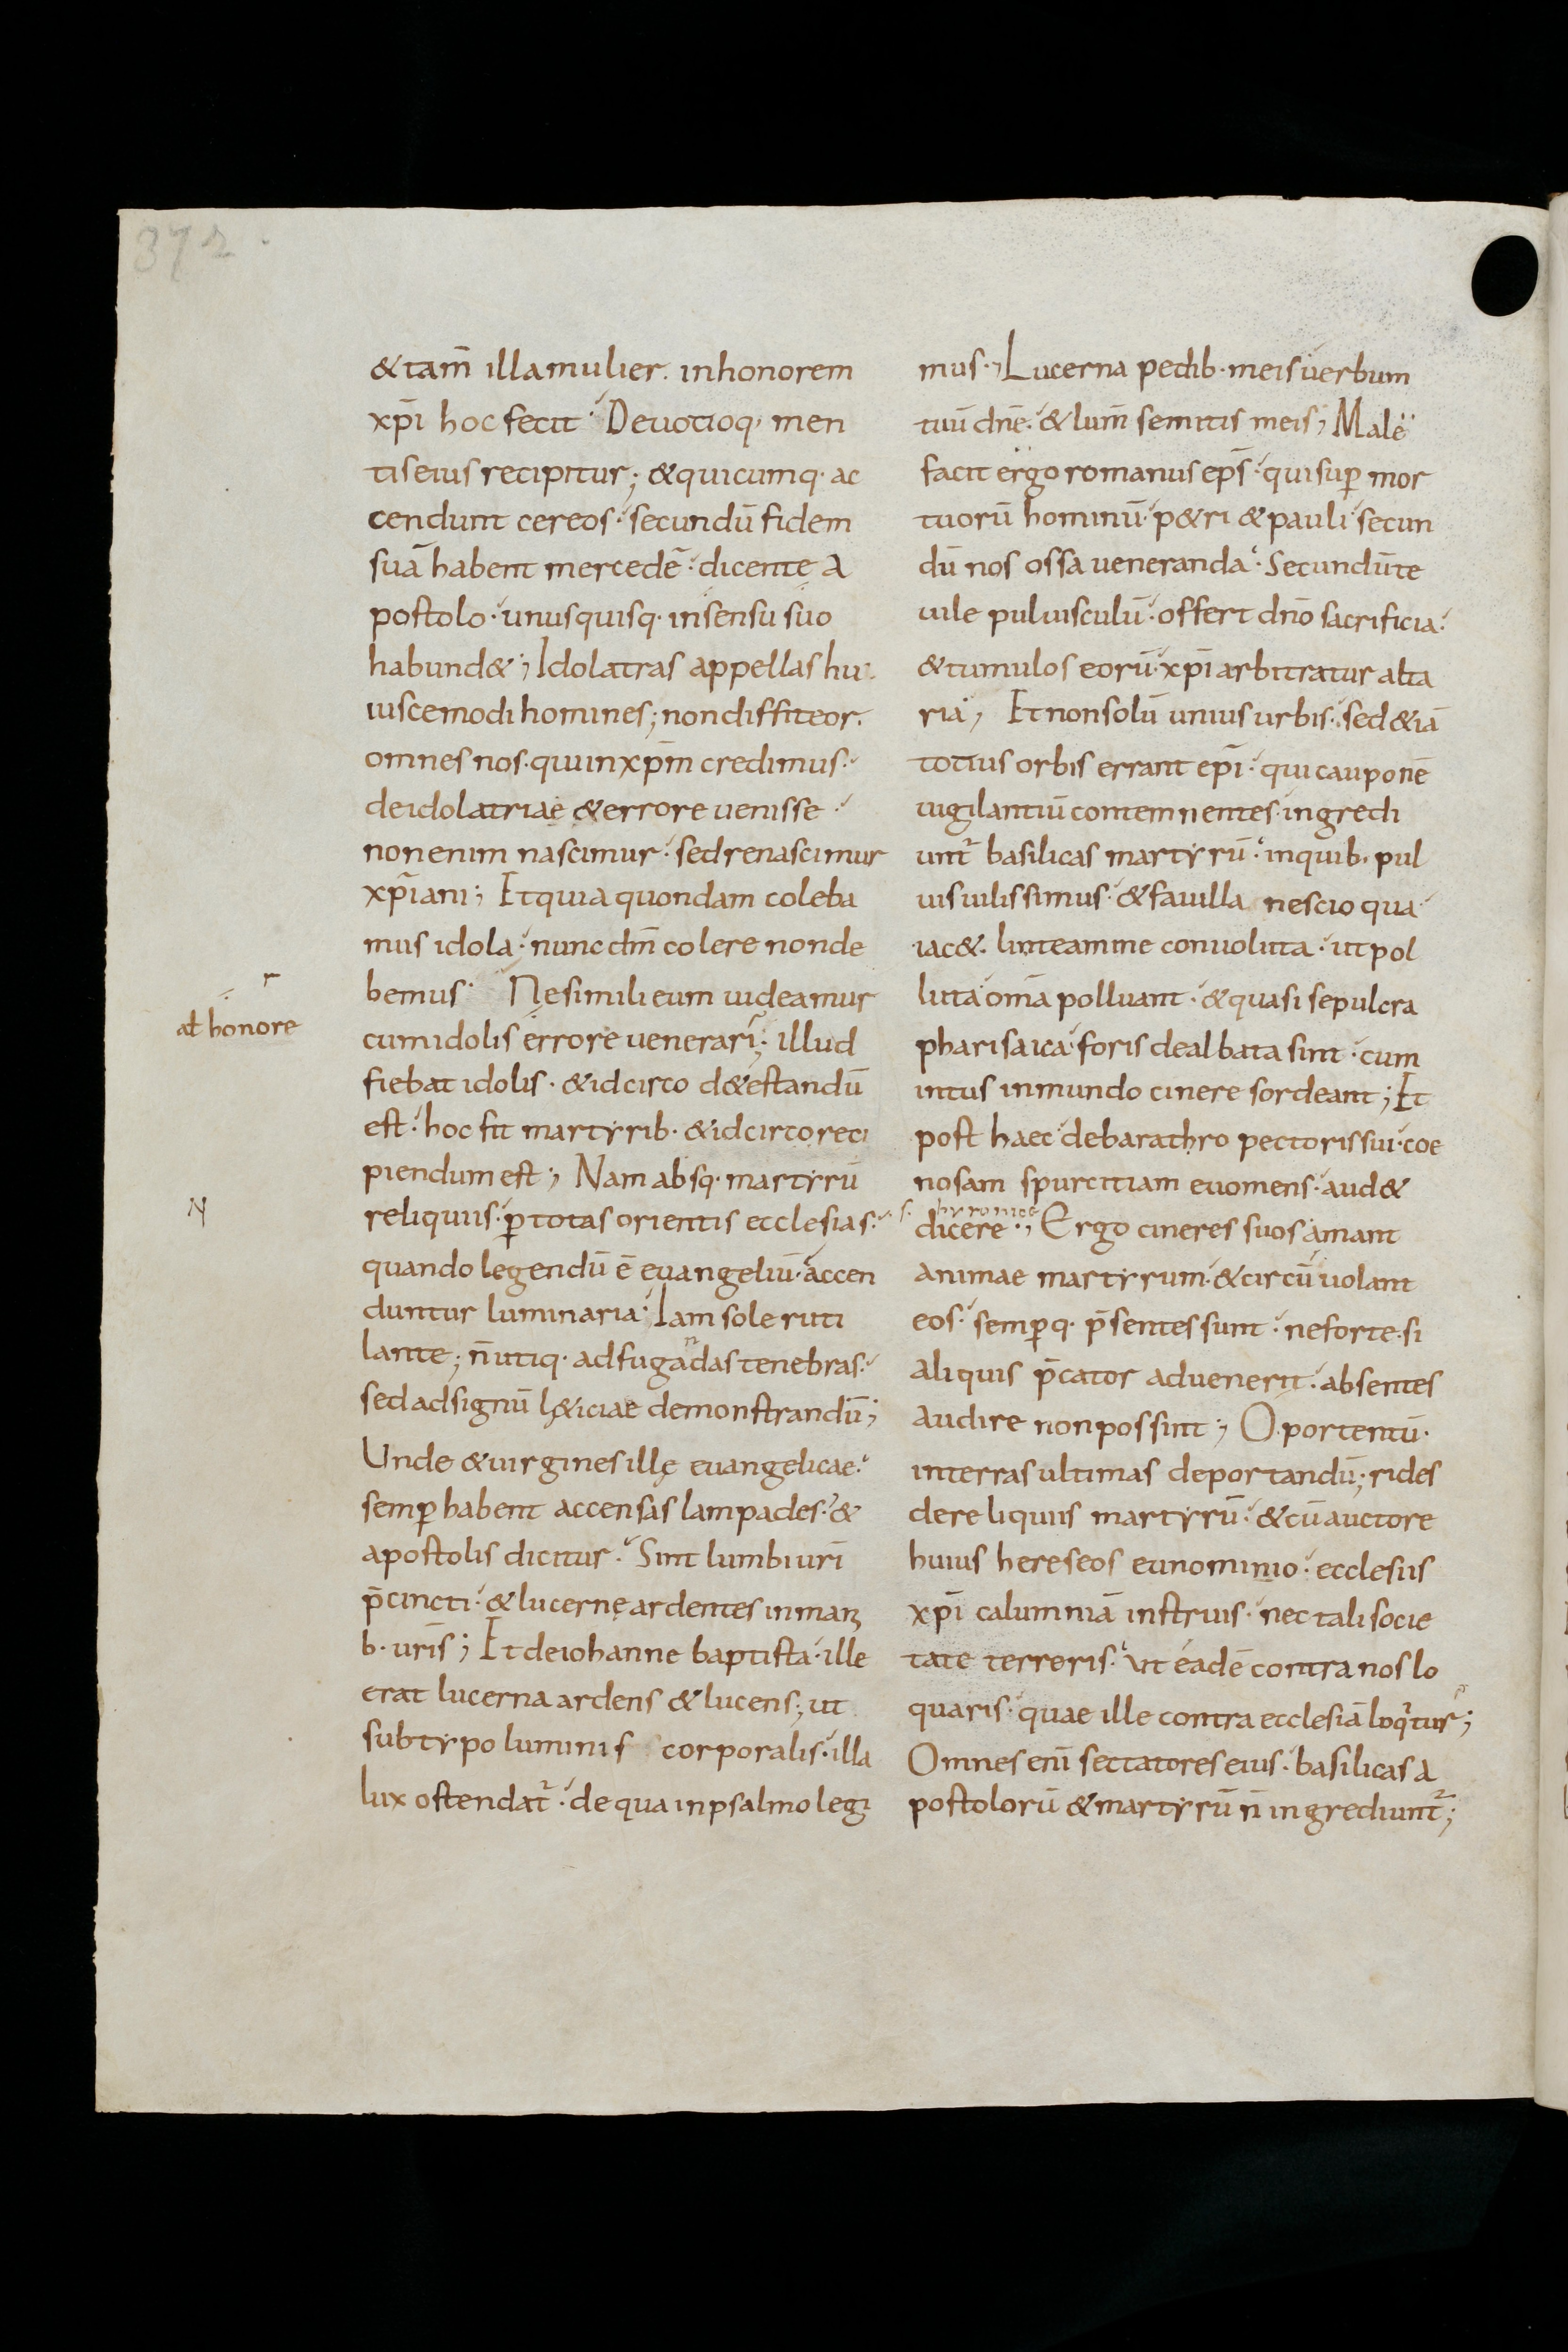 372
&tam̄ illa mulier. inhonorem
xp̄i hoc fecit · Deuotioq· men
tis eius recipitur; &quicumq· ac
cendunt cereos · secundū fidem
suā habent mercedē · dicente a
postolo · unusquisq· insensu suo
habund&; Idolatras appellas hu
iuscemodi homines; non diffiteor.
omnes nos · qui inxp̄m credimus ·
deidolatriae &errore uenisse ·
non enim nascimur · sed renascimur
xp̄iani; Et quia quondam coleba
mus idola · nunc dm̄ colere non de
bemus · Ne simili eum uideamur
al honore
cum idolis errore uenerari; illud
fiebat idolis · &idcirco d&estandū
est · hoc fit martyrib· &idcirco reci
piendum est; Nam absq· martyrū
reliquiis · p̱ totas orientis ecclesias ·
quando legendū ē euangeliū · accen
duntur luminaria · Iam sole ruti
lante; n̄ utiq· ad fugandas tenebras ·
sed ad signū l&iciae demonstrandū;
Unde &uirgines illę euangelicae ·
semp̱ habent accensas lampades · &
apostolis dicitur · Sint lumbi uri
p̄cincti · &lucernę ardentes in mani
b· uris; Et de iohanne baptista · ille
erat lucerna ardens &lucens; ut
sub typo luminis corporalis · illa
lux ostendat̄ · de qua in psalmo legi
mus ·; Lucerna pedib· meis uerbum
tuū dn̄e · &lum̄ semitis meis; Male
facit ergo romanus ep̄s · qui sup̱ mor
tuorū hominū · p&ri &pauli secun
dū nos ossa ueneranda · Secundū te
uile puluisculū · offert dn̄o sacrificia ·
&tumulos eorū · xp̄i arbitratur alta
ria; Et non solū unius urbis · sed &iā
totius orbis errant ep̄i · qui cauponē
uigilantiū contemnentes · ingredi
unt̄ basilicas martyrū · in quib· pul
uis uilissimus · &fauilla nescio qua
iac&. linteamine conuoluta · ut pol
luta om̄a polluant · &quasi sepulcra
pharisaica foris dealbata sint · cum
intus inmundo cinere sordeant; Et
post haec de barathro pectoris sui · coe
nosam spurcitiam euomens · aud&
dicere ·; Ergo cineres suos amant
animae martyrum · &circū uolant
eos · semp̱q· p̄sentes sunt · ne forte · si
aliquis p̄cator aduenerit · absentes
audire non possint; O portentū ·
in terras ultimas deportandū; rides
de reliquiis martyrū · &cū auctore
huius hereseos eunominio · ecclesiis
xp̄i calumniā instruis · nec tali socie
tate terreris · ut eadē contra nos lo
quaris · quae ille contra ecclesiā loq̄tur;
Omnes eni sectatores eius · basilicas a
postolorū &martyrū n̄ ingrediunt̄;